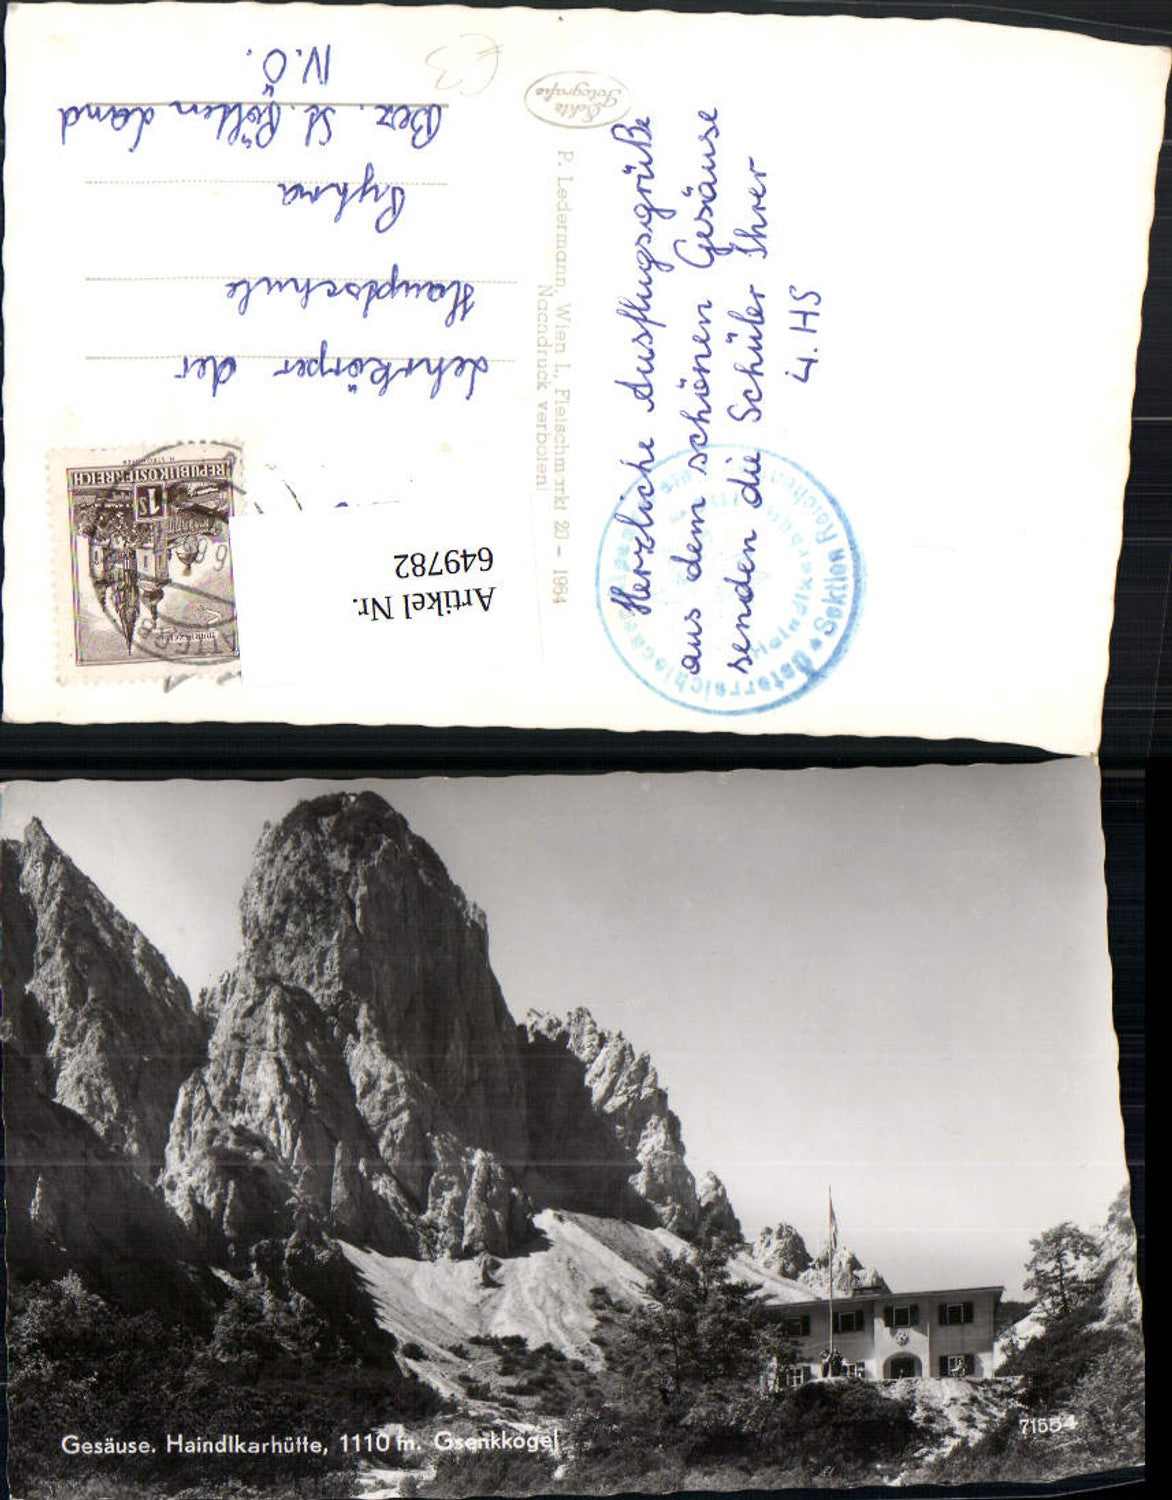 Herzliche Ausflugsgrüße
aus dem schönen Gesäuse
senden die Schüler Ihrer
4. HS
Lehrkörper der
Hauptschule
Pyhra
Bez. St. Pölten Land
N.Ö.
Echte
Fotografie
P. Ledermann, Wien I., Fleischmarkt 20 - 1964
Nachdruck verboten!
Artikel Nr.
649782
REPUBLIK ÖSTERREICH
1S
Sektion Reichen
Gesäuse. Haindlkarhütte, 1110 m. Gsenkkogel
71554